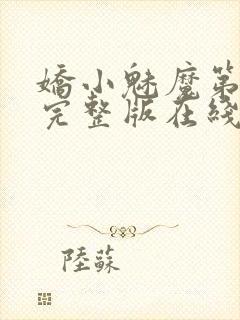 嬌小魅魔第
完整版在綫
陸蘇